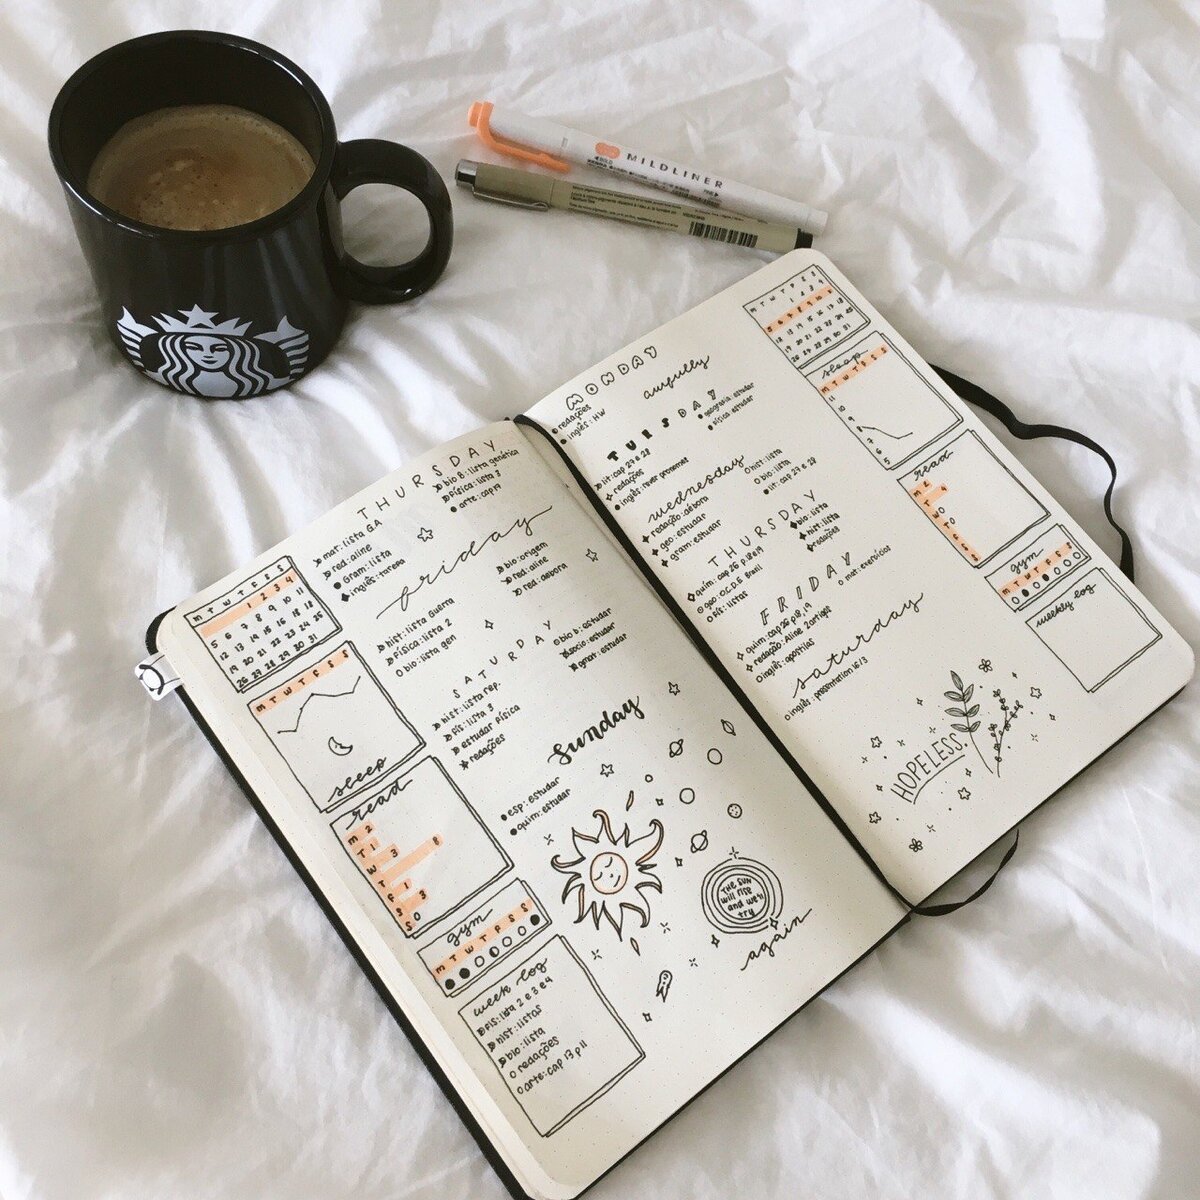 MILDLINER
THURSDAY
mat: lista GA
red: aline
Gram: lista
inglês: tarefa
bio B: lista genética
física: lista 3
arte: cap 19
friday
hist: lista Guerra
física: lista 2
bio: lista gen
bio: origem
red: aline
red: debora
SATURDAY
hist: lista rep.
fís: lista 3
estudar física
redações
bio b: estudar
socio: estudar
gram: estudar
sunday
esp: estudar
quim: estudar
M T W T F S S
1 2 3 4
5 6 7 8 9 10 11
12 13 14 15 16 17 18
19 20 21 22 23 24 25
26 27 28 29 30 31
M T W T F S S
sleep
read
M 2
T 1 3
W 8
T
F 1
S 3
S 0
gym
M T W T F S S
week log
fís: lista 2 e 3 e 4
hist: listas
bio: lista
redações
arte: cap 13 p 11
THE SUN
will rise
and we'll
try
again
MONDAY
redações
inglês: HW
awfully
TUESDAY
lit: cap 27 e 28
redações
inglês: rever
geografia: estudar
física: estudar
wednesday
redação: débora
geo: estudar
gram: estudar
hist: lista
bio: lista
lit: cap 27 e 28
THURSDAY
quim: cap 26 p 18 e 19
geo: O.C.D.E Brasil
fís: listas
bio: lista
hist: lista
redações
FRIDAY
quim: cap 26 p 18, 19
redação: Aline
inglês: apostilas
mat: exercícios
saturday
inglês: presentation 16/3
HOPELESS.
M T W T F S S
1 2 3 4
5 6 7 8 9 10 11
12 13 14 15 16 17 18
19 20 21 22 23 24 25
26 27 28 29 30 31
sleep
M T W T F S S
11
10
9
8
7
6
5
read
M 2
T 4
W 0
T 0
F
S
S
gym
M T W T F S S
weekly log